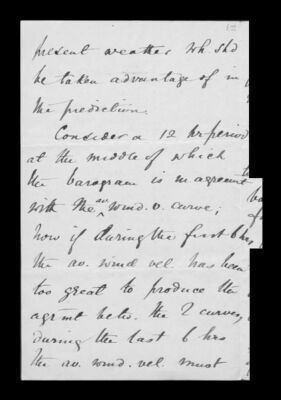 present weather wh shd
be taken advantage of in
the prediction.
Consider a 12 hr period
at the middle of which
the barogram is in agreemt
with the av wind.v. curve;
now if during the first 6 hrs
the av. wind vel. has been
too great to produce the
agrmt betw. the 2 curves,
during the last 6 hrs
the av. wind. vel. must